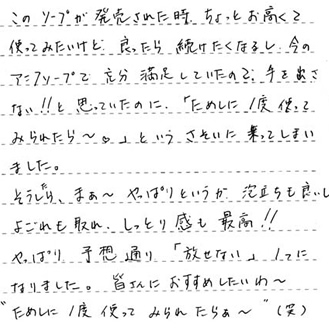 このソープが発売された時、ちょっとお高くて
使ってみたいけど、良ったら続けたくなるし、今の
アニアソープで充分満足していたので、手を出さ
ない!!と思っていたのに、「ためしに1度使って
みられたら～♡」というさそいに乗ってしまい
ました。
そうしたら、まぁ～やっぱりというか泡立ちも良いし
よごれも取れ、しっとり感も最高!!
やっぱり予想通り「放せない」1つに
なりました。皆さんにおすすめしたいわ～
"ためしに1度使ってみられたらぁ～"(笑)